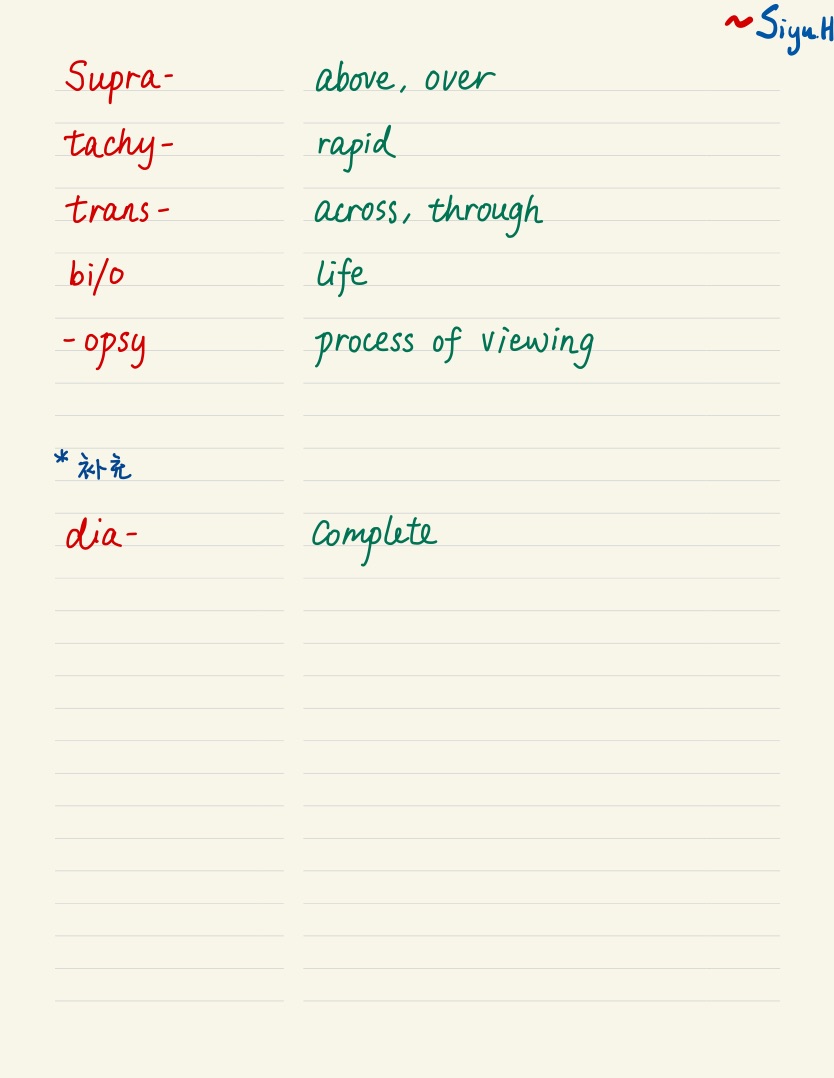 ~Siyu.H
Supra- above, over
tachy- rapid
trans- across, through
bi/o life
-opsy process of viewing
*补充
dia- Complete